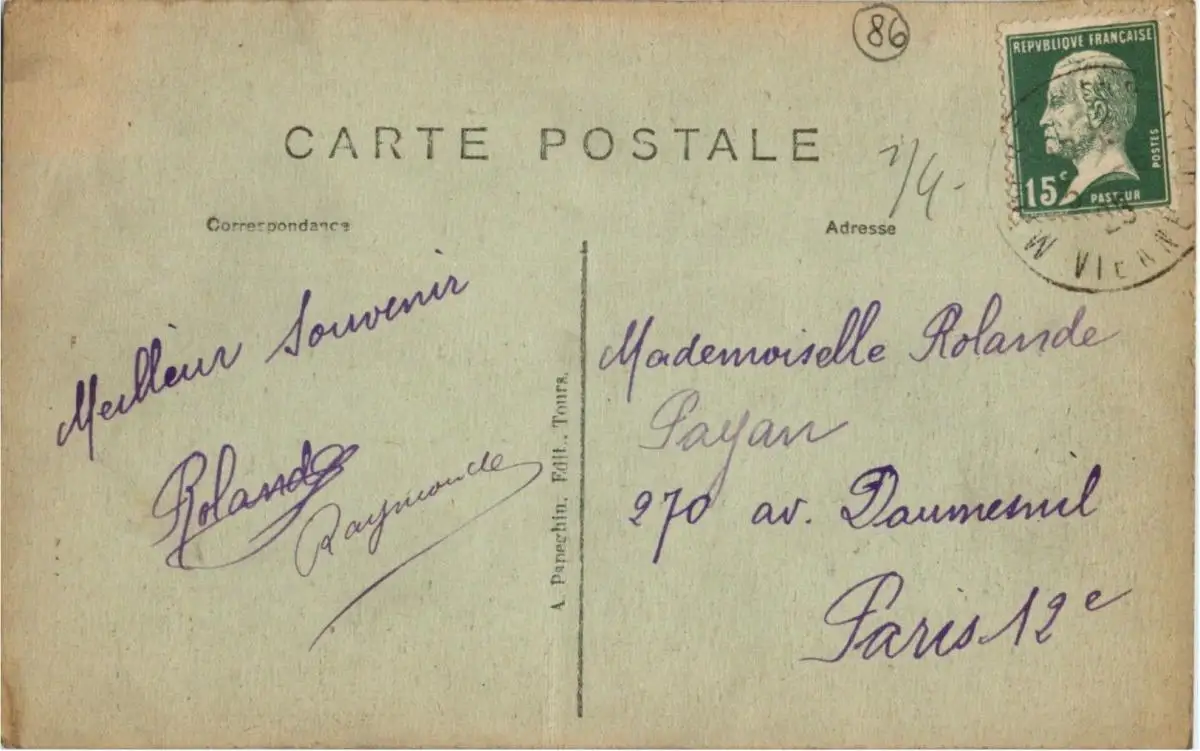 86
REPVBLIQUE FRANÇAISE
POSTES
15c
PASTEUR
VIENNE
CARTE POSTALE
Correspondance
Adresse
Meilleur Souvenir
Rolande
Raymonde
A. Papeghin, Edit., Tours.
Mademoiselle Rolande
Payan
270 av. Daumesnil
Paris 12e